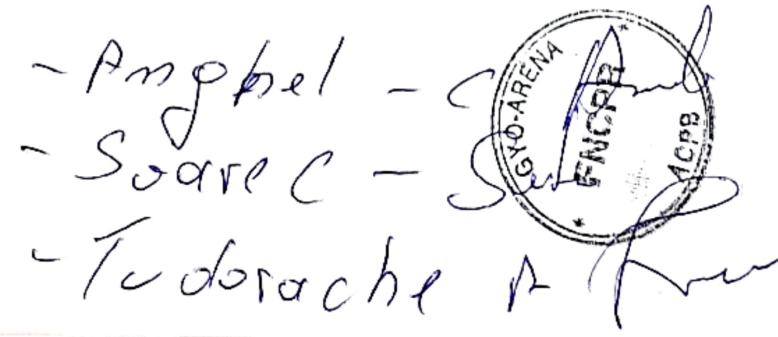 - Anghel - C
- Soare C -
- Tudorache A
GYO-ARENA
FNCPR
ACPB